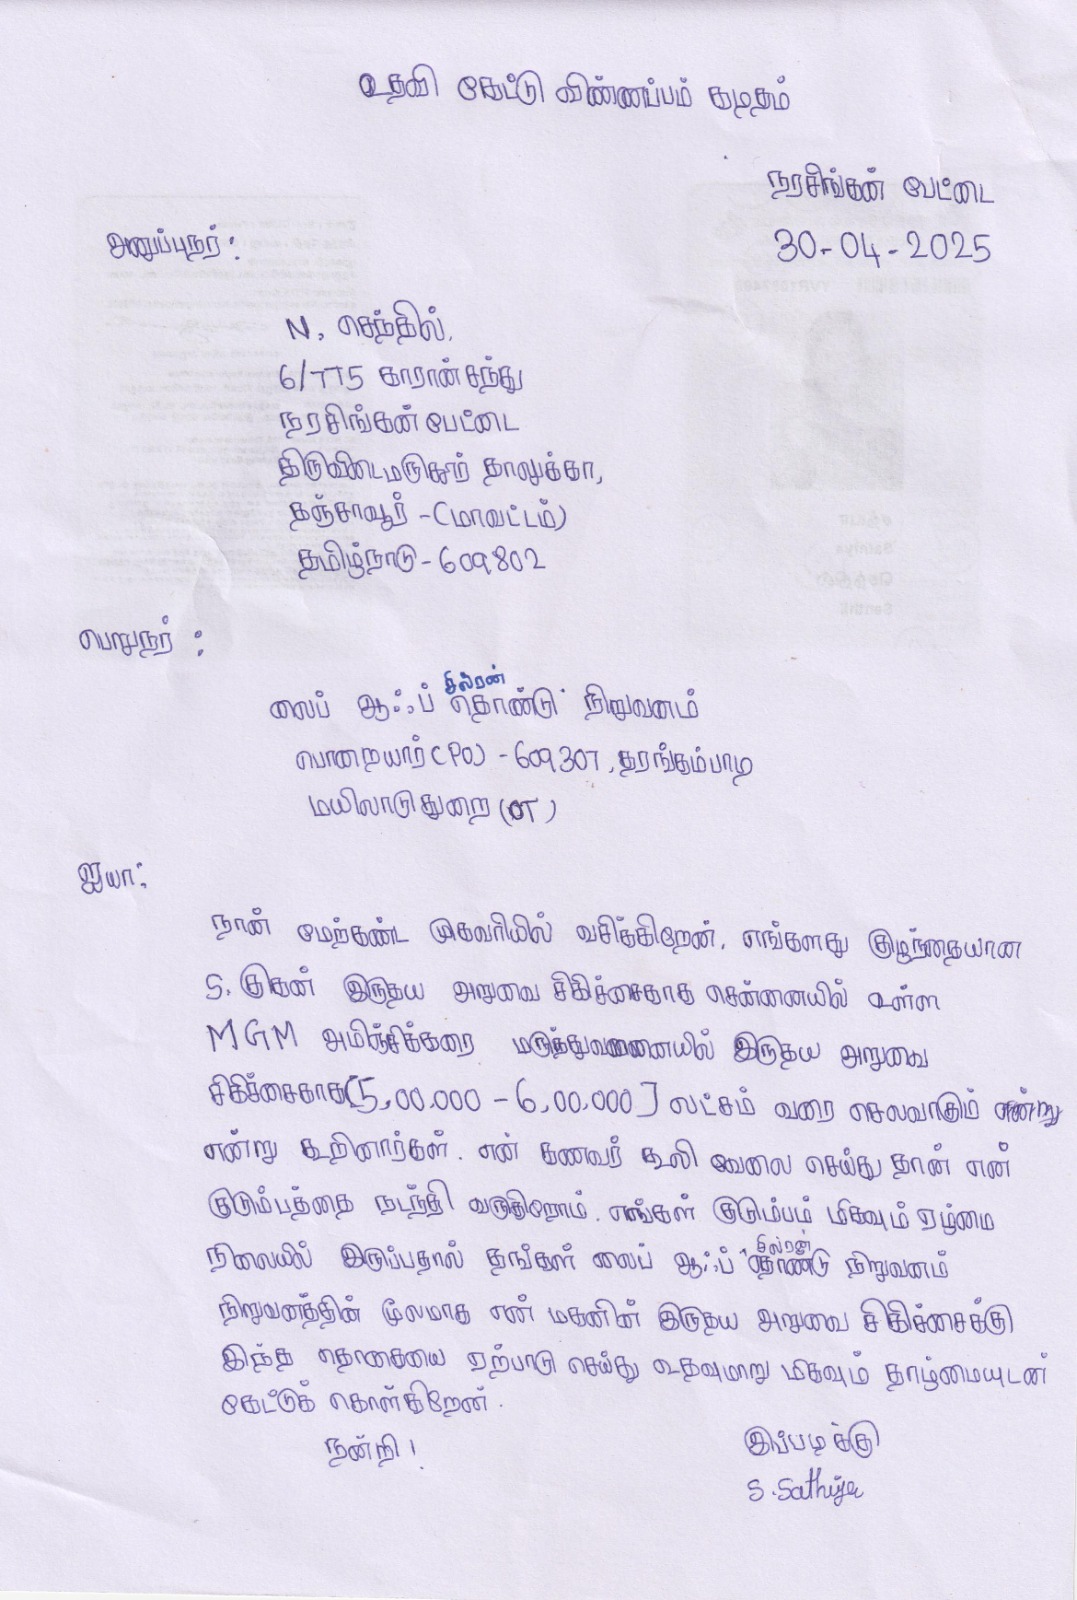 உதவி கேட்டு விண்ணப்பம் கடிதம்
நரசிங்கன் பேட்டை
30-04-2025
அனுப்புநர்:
N. செந்தில்,
6/775 காரான்சந்து
நரசிங்கன்பேட்டை
திருவிடைமருதூர் தாலுக்கா,
தஞ்சாவூர் -(மாவட்டம்)
தமிழ்நாடு - 609802
பெறுநர் :
லைப் ஆஃப் சில்ரன் தொண்டு நிறுவனம்
பொறையார் (PO) - 609307, தரங்கம்பாடி
மயிலாடுதுறை (DT)
ஐயா:
நான் மேற்கண்ட முகவரியில் வசிக்கிறேன். எங்களது குழந்தையான
S. குகன் இருதய அறுவை சிகிச்சைகாக சென்னையில் உள்ள
MGM அமிஞ்சிக்கரை மருத்துவமனையில் இருதய அறுவை
சிகிச்சைகாக [5,00,000 - 6,00,000] லட்சம் வரை செலவாகும் என்று
என்று கூறினார்கள். என் கணவர் கூலி வேலை செய்து தான் என்
குடும்பத்தை நடந்தி வருகிறோம். எங்கள் குடும்பம் மிகவும் ஏழ்மை
நிலையில் இருப்பதால் தங்கள் லைப் ஆஃப் சில்ரன் தொண்டு நிறுவனம்
நிறுவனத்தின் மூலமாக என் மகனின் இருதய அறுவை சிகிச்சைக்கு
இந்த தொகையை ஏற்பாடு செய்து உதவுமாறு மிகவும் தாழ்மையுடன்
கேட்டுக் கொள்கிறேன்.
நன்றி!
இப்படிக்கு
S. Sathiya